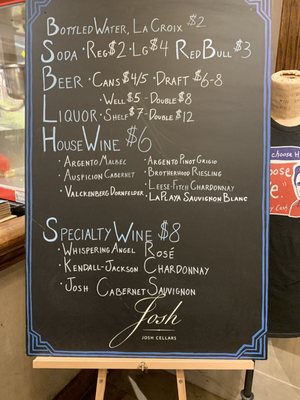 Bottled Water, La Croix $2
Soda • Reg $2 • Lg $4 Red Bull $3
Beer • Cans $4/5 • Draft $6-8
Liquor • Well $5 - Double $8
• Shelf $7 - Double $12
House Wine $6
• Argento Malbec • Argento Pinot Grigio
• Auspicion Cabernet • Brotherhood Riesling
• Valckenberg Dornfelder • Leese-Fitch Chardonnay
• LaPlaya Sauvignon Blanc
Specialty Wine $8
• Whispering Angel Rosé
• Kendall-Jackson Chardonnay
• Josh Cabernet Sauvignon
Josh
JOSH CELLARS
choose H